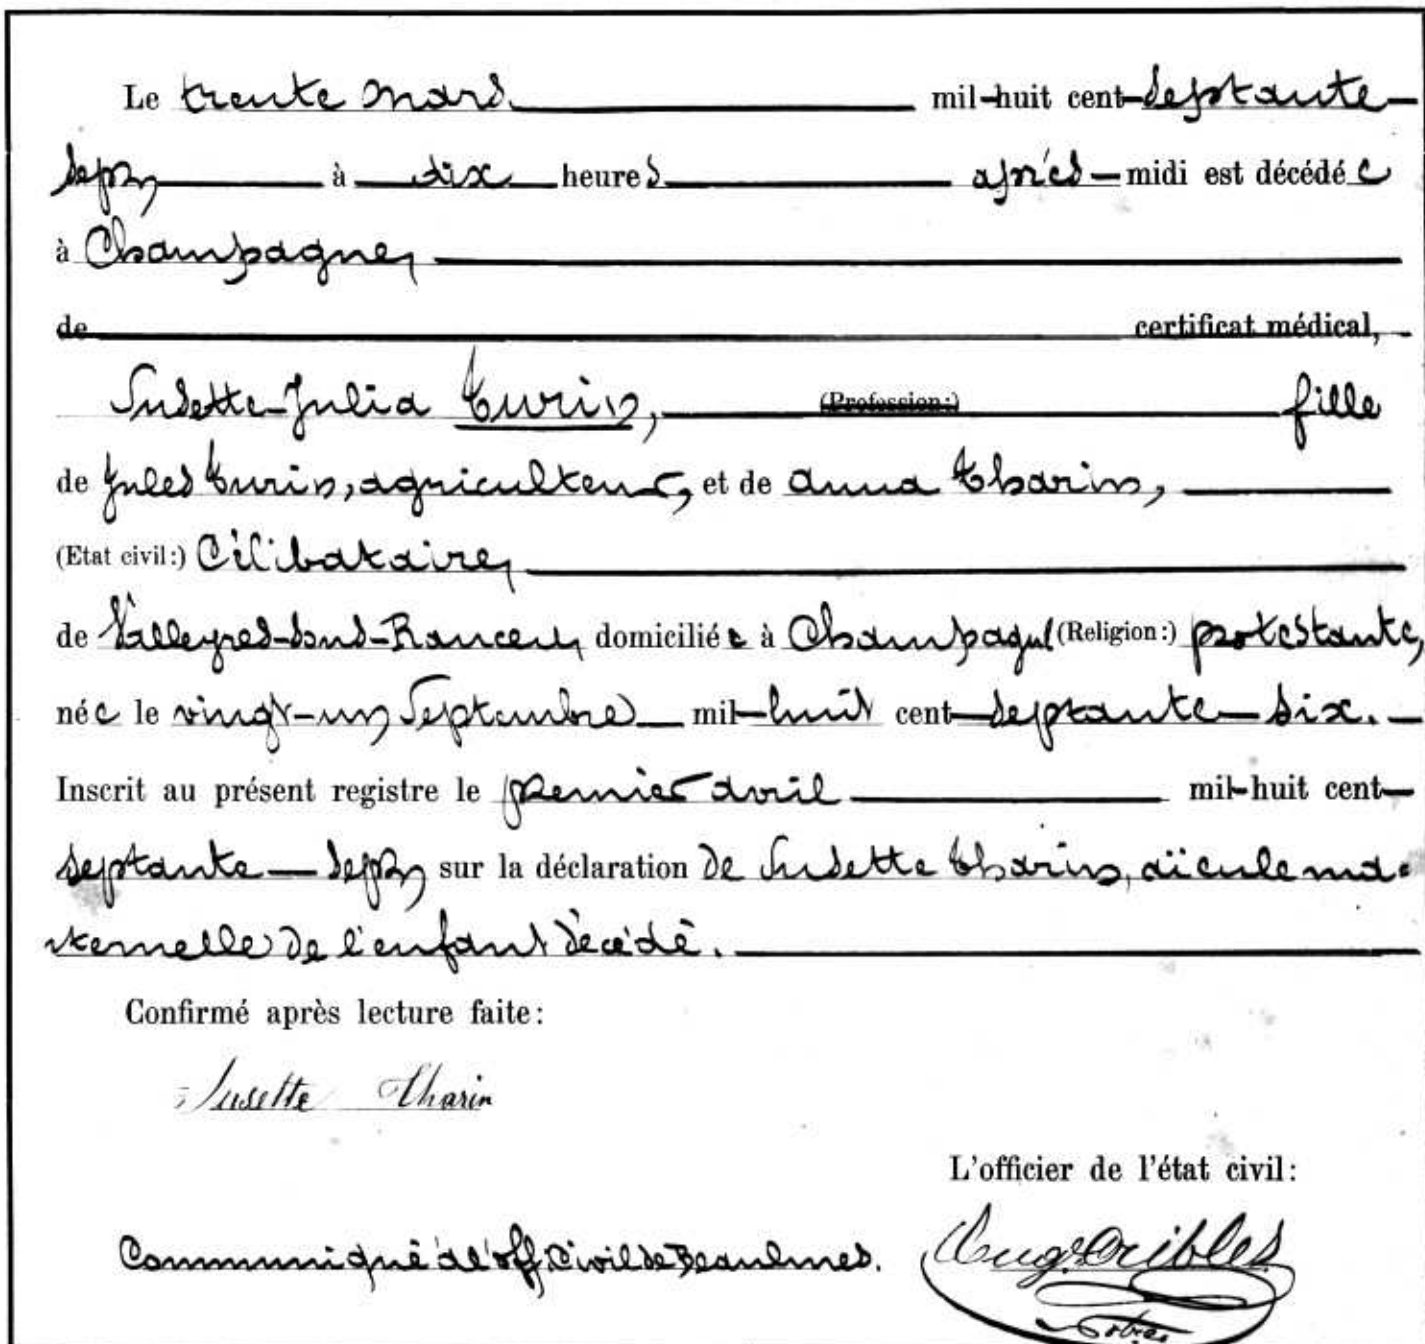 Le trente Mars mil huit cent septante-
sept à dix heures après-midi est décédée
à Champagne,
de certificat médical,
Susette-Julia Turin, (Profession:) fille
de Jules Turin, agriculteur, et de Anna Tharin,
(Etat civil:) Célibataire,
de Valleyres-sous-Rances, domiciliée à Champagne (Religion:) protestante,
née le vingt-un Septembre mil-huit cent septante-six.
Inscrit au présent registre le premier avril mil-huit cent
septante-sept sur la déclaration de Susette Tharin, aïeule ma-
ternelle de l'enfant décédé.
Confirmé après lecture faite:
Susette Tharin
L'officier de l'état civil:
Communiqué à l'off. civil de Beaulmes.